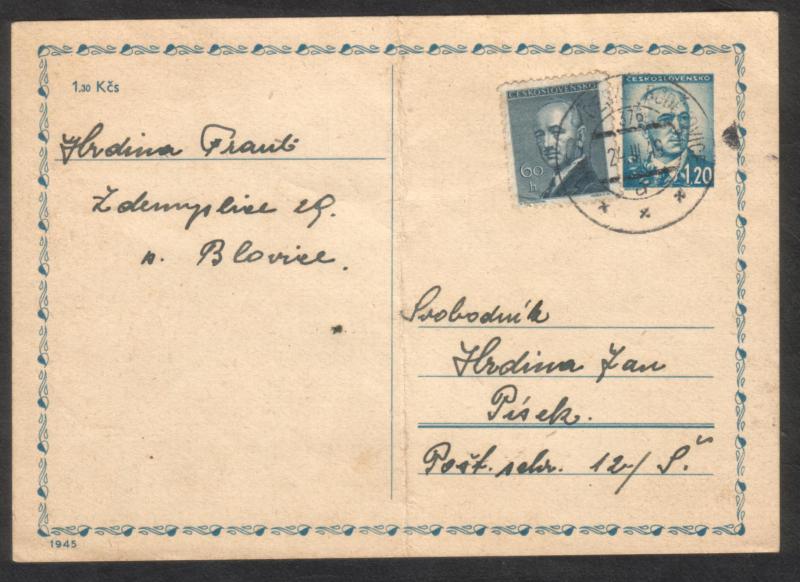 1.30 Kčs
ČESKOSLOVENSKO
60
h
ČESKOSLOVENSKO
1.20
24.III.
Hrdina Frant.
Zdemyslice 29.
p. Blovice.
Svobodník
Hrdina Jan
Písek.
Pošt. schr. 12/Š
1945